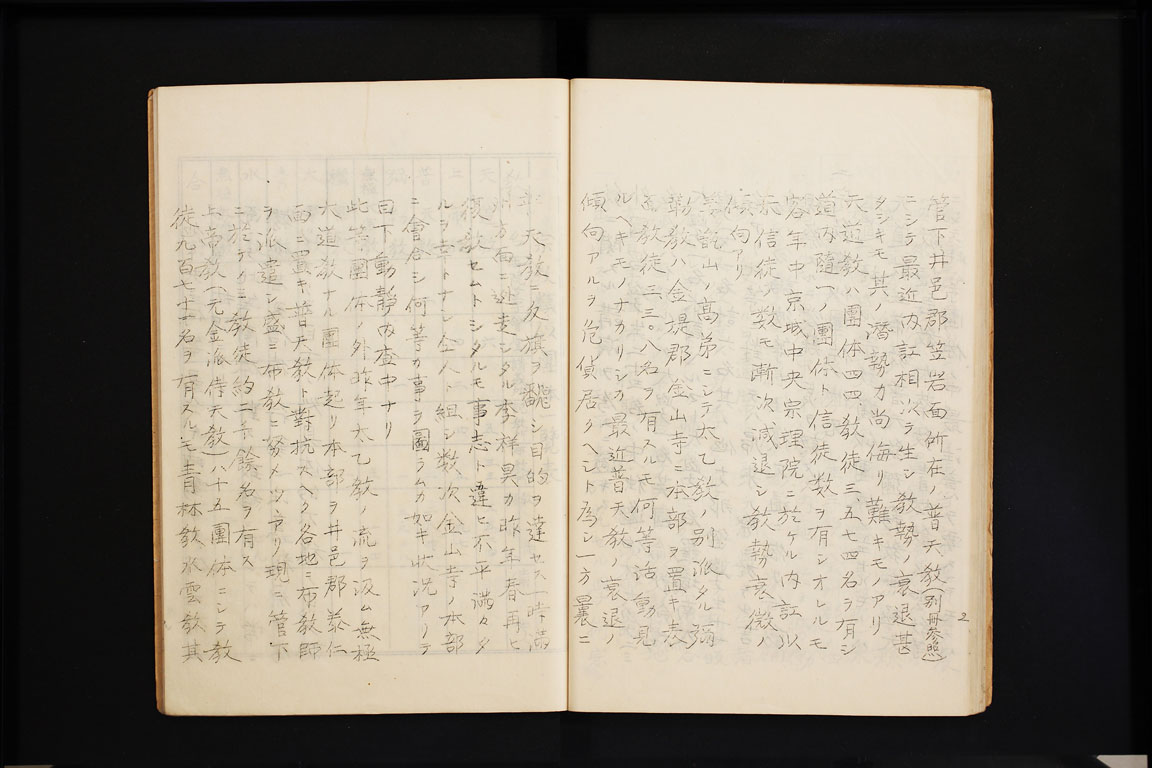 2
管下井邑郡笠岩面所在ノ普天教(別冊参照)
ニシテ最近内訌相次ラ生シ教勢ノ衰退甚
タシキモ其ノ潜勢力尚侮リ難キモノアリ
天道教ハ團体四四教徒三、五七四名ラ有シ
道内随一ノ團体ト信徒数ヲ有シオレルモ
客年中京城中央宗理院ニ於ケル内訌以
来信徒ノ数モ漸次減退シ教勢衰微ノ
傾向アリ
姜甑山ノ高弟ニシテ太乙教ノ別派タル彌
勒教ハ金堤郡金山寺ニ本部ヲ置キ表
面教徒三三〇八名ヲ有スルモ何等活動見
ルヘキモノナカリシカ最近普天教ノ衰退ノ
傾向アルヲ危貨居クヘシト為シ一方曩ニ
普天教ニ反旗ヲ飜シ目的ヲ達セス一時満
洲方面ニ逃走シタル李祥昊カ昨年春再ヒ
復教セムトシタルモ事志ト違ヒ不平満々タ
ルヲ幸トナシ仝人ト組シ数次金山寺ノ本部
ニ會合シ何等カ事ヲ圖ラムカ如キ状況アリテ
目下動静内査中ナリ
此等團体ノ外昨年太乙教ノ流ヲ汲ム無極
大道教ナル團体起リ本部ヲ井邑郡泰仁
面ニ置キ普天教ト對抗スヘク各地ニ布教師
ヲ派遣シ盛ニ布教ニ努メツヽアリ現ニ管下
ニ於テカニ教徒約二千餘名ヲ有ス
上帝教(元金派侍天教)ハ十五團体ニシテ教
徒九百七十一名ヲ有スルモ青林教水雲教其